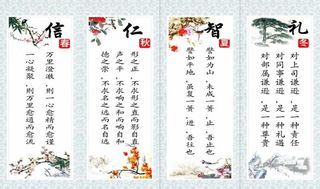 礼
冬
对上司谦逊,是一种责任
对同事谦逊,是一种礼遇
对部属谦逊,是一种尊贵
智
夏
譬如为山,未成一篑,止,吾止也
譬如平地,虽复一篑,进,吾往也
仁
秋
形之正,不求影之直而影自直
声之平,不求响之和而响自和
德之崇,不求名之远而名自远
信
春
万里澄澈,则一心愈精而愈谨
一心凝聚,则万里愈通而愈流